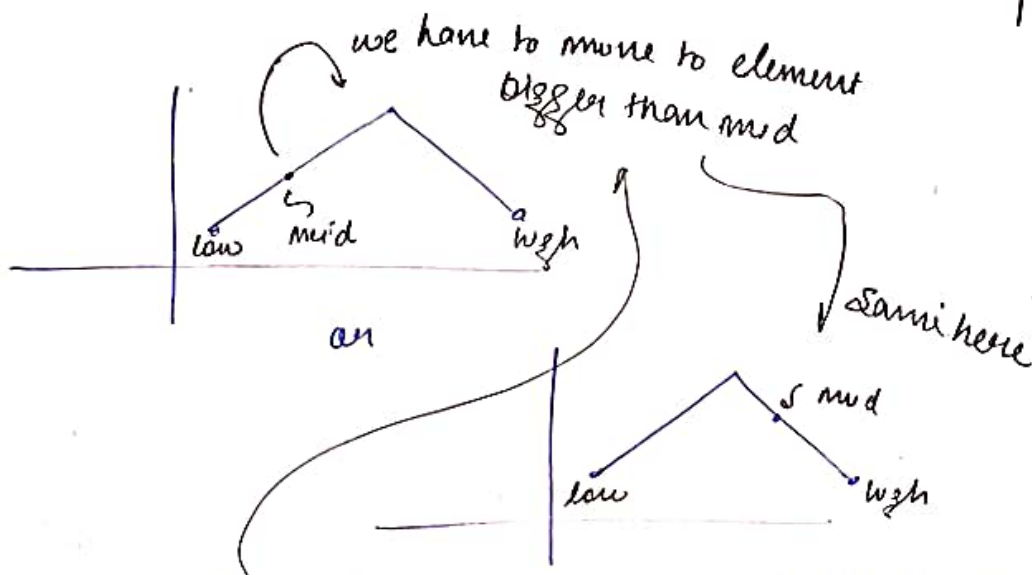 we have to move to element
bigger than mid
low
mid
high
or
Same here
mid
low
high